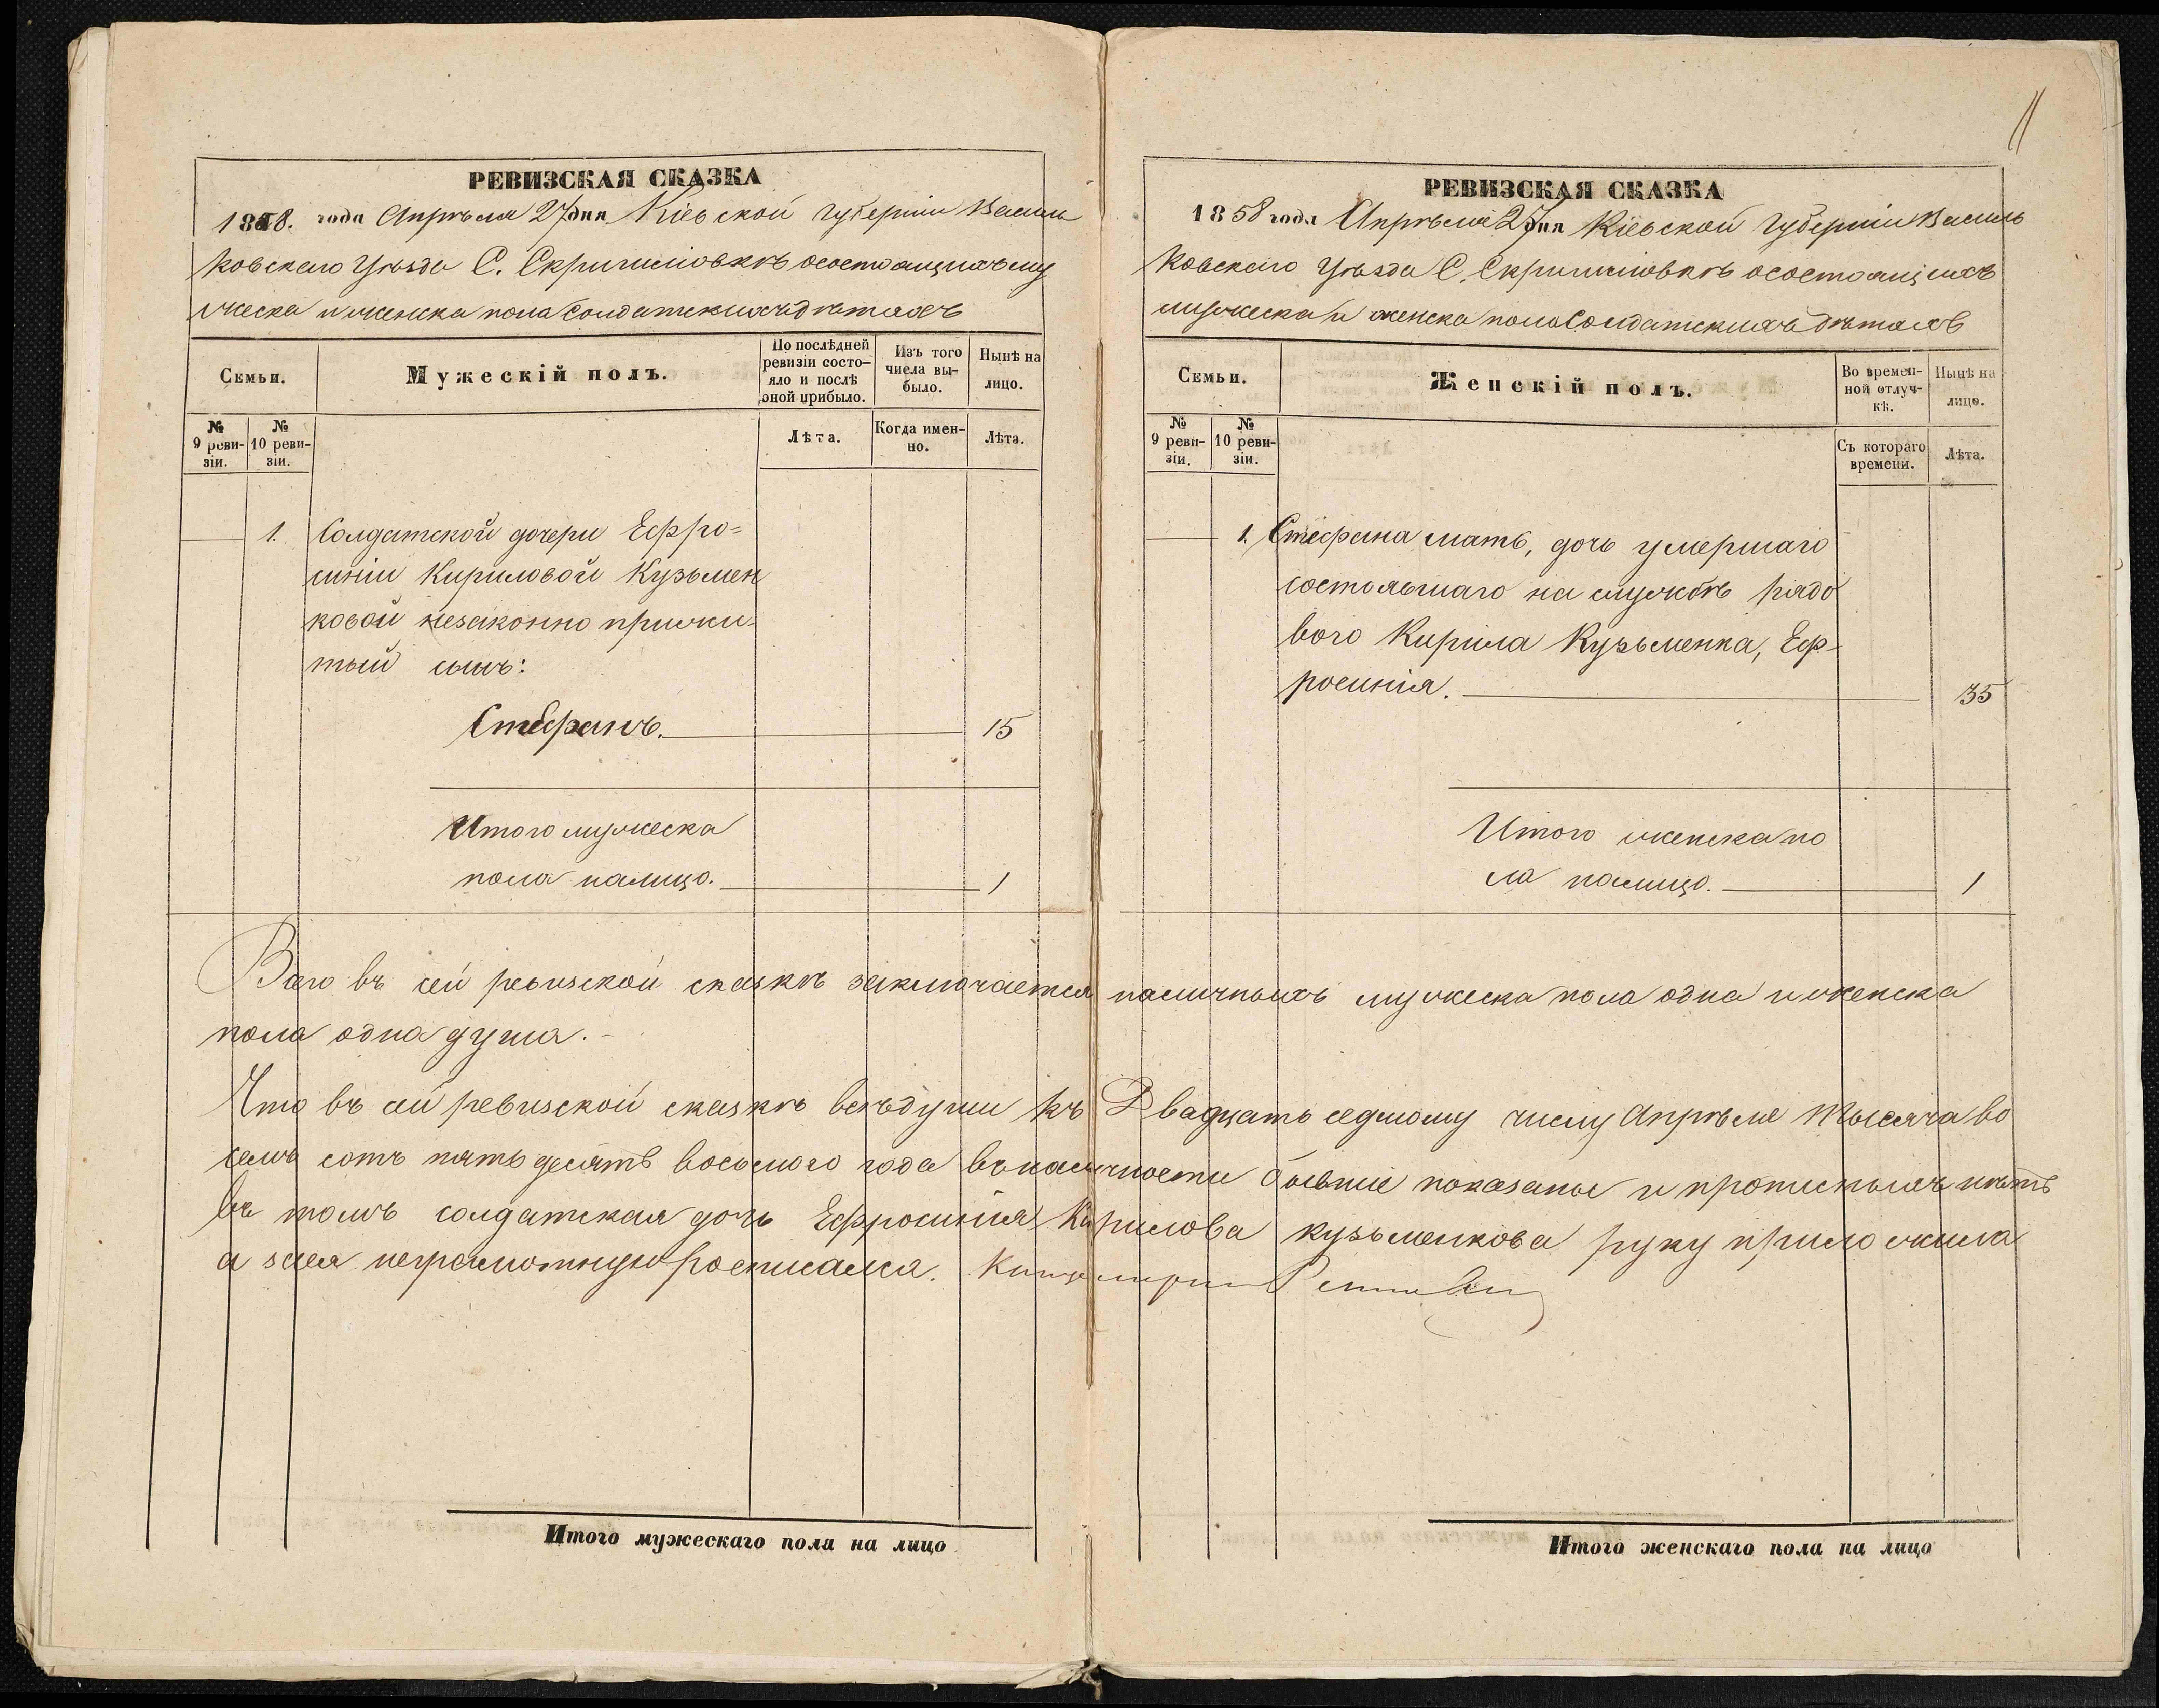 11
РЕВИЗСКАЯ СКАЗКА
1858. года Апрѣля 27 дня Кіевской губерніи Василь
ковскаго Уѣзда С. Скригилиовкѣ осостоящихъ му
жеска и женска пола Солдатскихъ дѣтяхъ
Семьи.
Мужескій полъ.
По послѣдней ревизіи состо-
яло и послѣ оной прибыло.
Изъ того числа вы-
было.
Нынѣ на лицо.
№ 9 реви-
зіи.
№ 10 реви-
зіи.
Лѣта.
Когда имен-
но.
Лѣта.
1. Солдатской дочери Ефро=
синіи Кириловой Кузьмен
ковой незаконно прижи-
тый сынъ:
Стефанъ. 15
Итого мужеска
пола налицо. 1
РЕВИЗСКАЯ СКАЗКА
1858 года Апрѣля 27 дня Кіевской Губерніи Василь
ковскаго Уѣзда С. Скригилиовкѣ осостоящихъ
мужеска и женска пола Солдатскихъ дѣтяхъ
Семьи.
Женскій полъ.
Во времен-
ной отлуч-
кѣ.
Нынѣ на лицо.
№ 9 реви-
зіи.
№ 10 реви-
зіи.
Съ котораго времени.
Лѣта.
1. Стефана мать, дочь умершаго
состоявшаго на службѣ рядо
вого Кирила Кузьменка, Еф-
росинія. 35
Итого женска по
ла налицо. 1
Всего въ сей ревизской сказкѣ заключается наличныхъ мужеска пола одна и женска
пола одна душа.
Что въ сей ревизской сказкѣ всѣ души къ Двадцать седьмому числу Апрѣля тысяча во
семь сотъ пять десятъ восьмого года въ наличности бывшіе показаны и прописныхъ нѣтъ
въ томъ солдатская дочь Ефросинія Кирилова Кузьменкова руку приложила
а за нея неграмотную росписался.
Итого мужескаго пола на лицо
Итого женскаго пола на лицо